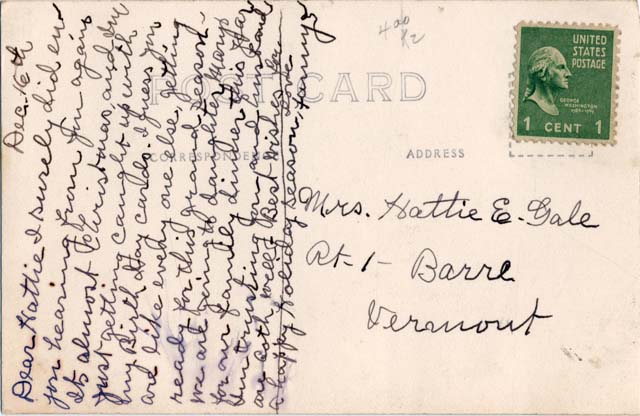 Dec. 16th
Dear Hattie I surely did en-
joy hearing from you again
Its almost Christmas and Im
just getting caught up with
my Birth day cards. I guess you
are like every one else, getting
ready for this grand season-
we are going to daughter Marys
for our family dinner this year
Im trusting you and husband
are both well. Best wishes for
a happy holiday season, Love
POST CARD
CORRESPONDENCE
ADDRESS
UNITED
STATES
POSTAGE
GEORGE
WASHINGTON
1789-1797
1 CENT 1
400
Mrs. Hattie E. Gale
Rt-1- Barre
Vermont